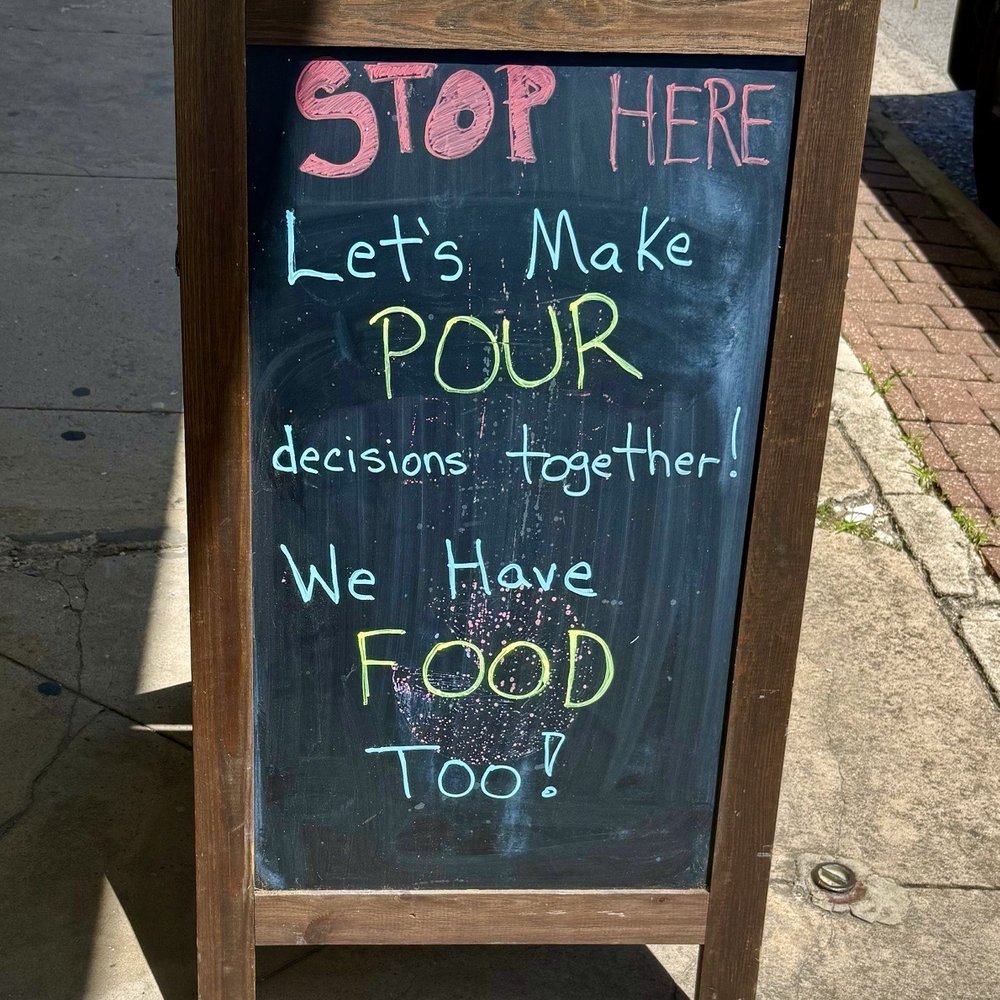 STOP HERE
Let's Make
POUR
decisions together!
We Have
FOOD
Too!